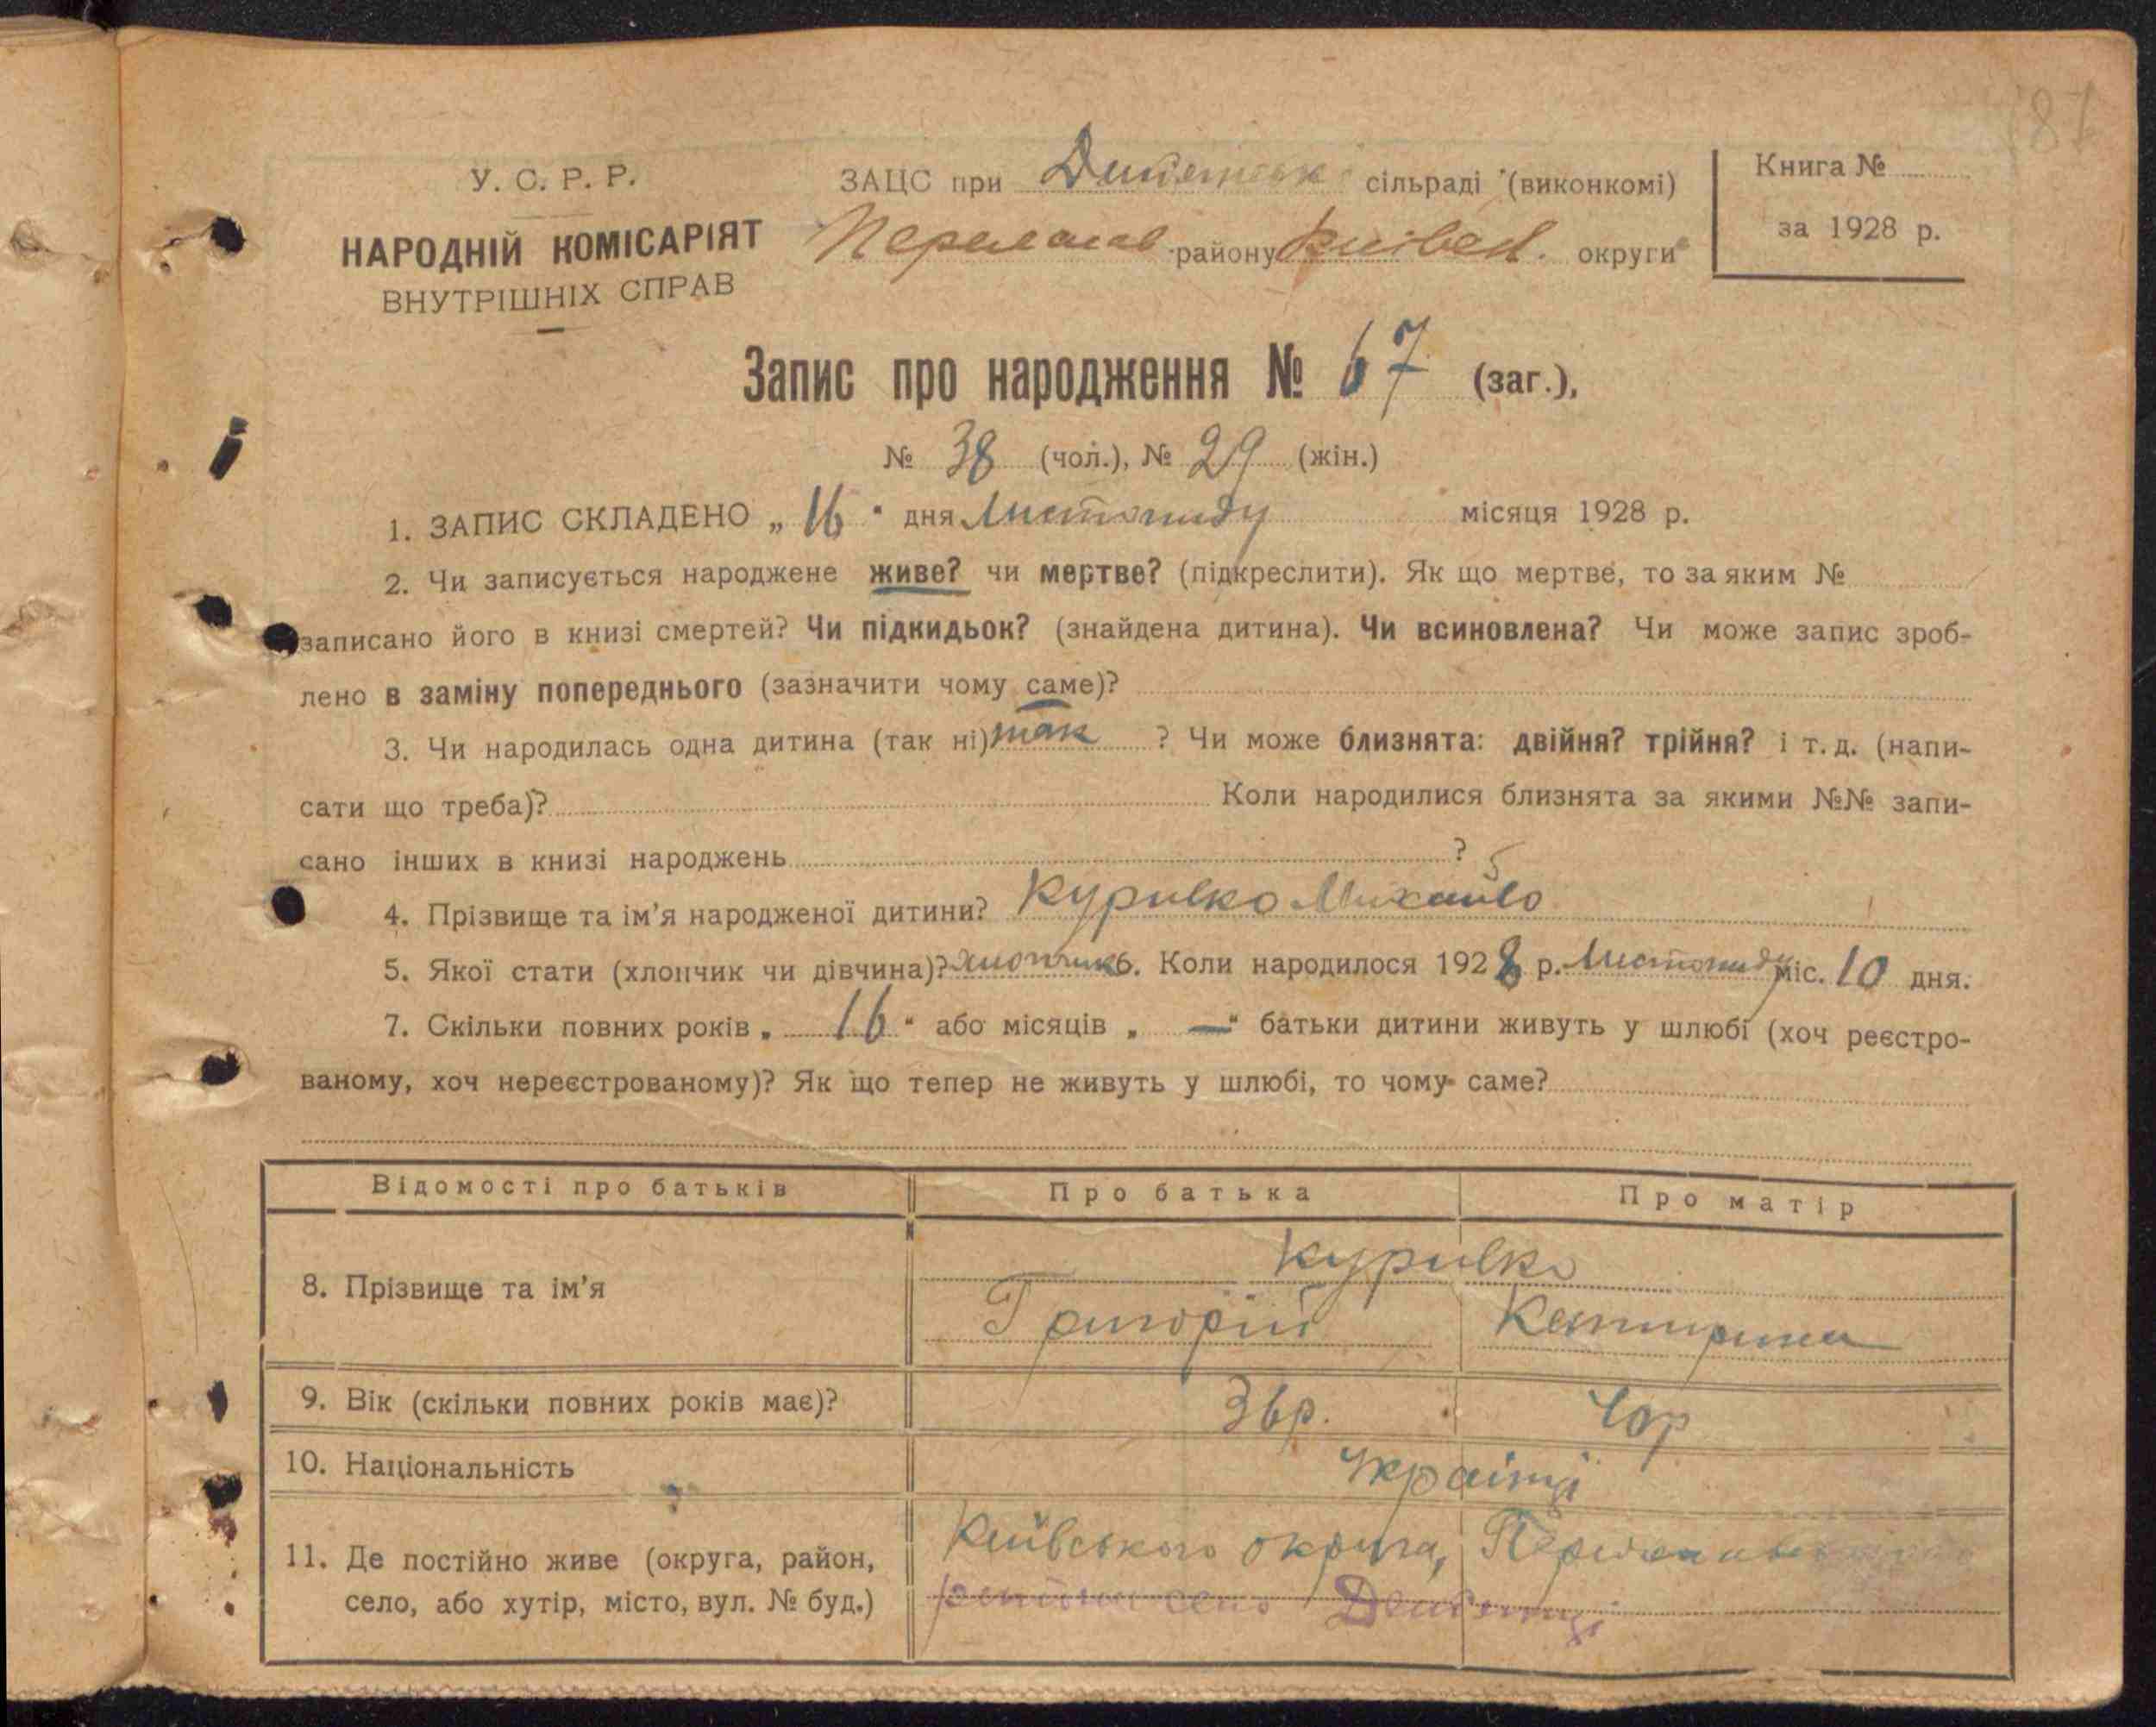 87
У. С. Р. Р.
НАРОДНІЙ КОМІСАРІЯТ
ВНУТРІШНІХ СПРАВ
ЗАЦС при сільраді (виконкомі)
Переяслав району Київськ. округи
Книга №
за 1928 р.
Запис про народження № 67 (заг.),
№ 38 (чол.), № 29 (жін.)
1. ЗАПИС СКЛАДЕНО „ 16 " дня Листопаду місяця 1928 р.
2. Чи записується народжене живе? чи мертве? (підкреслити). Як що мертве, то за яким №
записано його в книзі смертей? Чи підкидьок? (знайдена дитина). Чи всиновлена? Чи може запис зроб-
лено в заміну попереднього (зазначити чому саме)?
3. Чи народилась одна дитина (так ні) так ? Чи може близнята: двійня? трійня? і т. д. (напи-
сати що треба)? Коли народилися близнята за якими №№ запи-
сано інших в книзі народжень ?
4. Прізвище та ім'я народженої дитини? Курилко Михайло
5. Якої стати (хлопчик чи дівчина)? хлопчик 6. Коли народилося 1928 р. Листопаду міс. 10 дня.
7. Скільки повних років „ 16 " або місяців „ — " батьки дитини живуть у шлюбі (хоч реєстро-
ваному, хоч нереєстрованому)? Як що тепер не живуть у шлюбі, то чому саме?
Відомості про батьків Про батька Про матір
8. Прізвище та ім'я Курилко
Григорій Катирина
9. Вік (скільки повних років має)? 36р. 40р
10. Національність Українці
11. Де постійно живе (округа, район, Київського округа,
село, або хутір, місто, вул. № буд.) района село